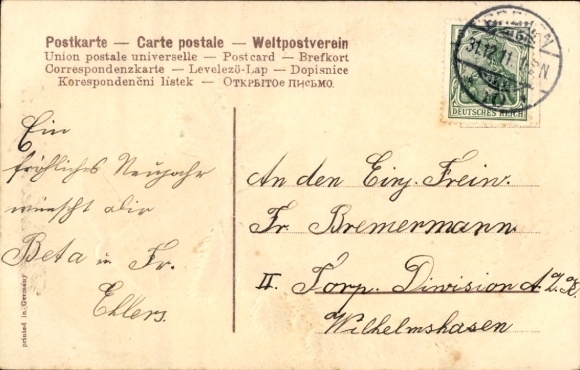 Postkarte — Carte postale — Weltpostverein
Union postale universelle — Postcard — Brefkort
Correspondenzkarte — Levelező-Lap — Dopisnice
Korespondenční lístek — Открытое письмо.
31.12.11
DEUTSCHES REICH
Ein
fröhliches Neujahr
wünscht dir
Beta u. Fr.
Ehlers.
An den Einj. Freiw.
Fr. Bremermann
II. Torp. Diwision
Wilhelmshafen
printed in Germany